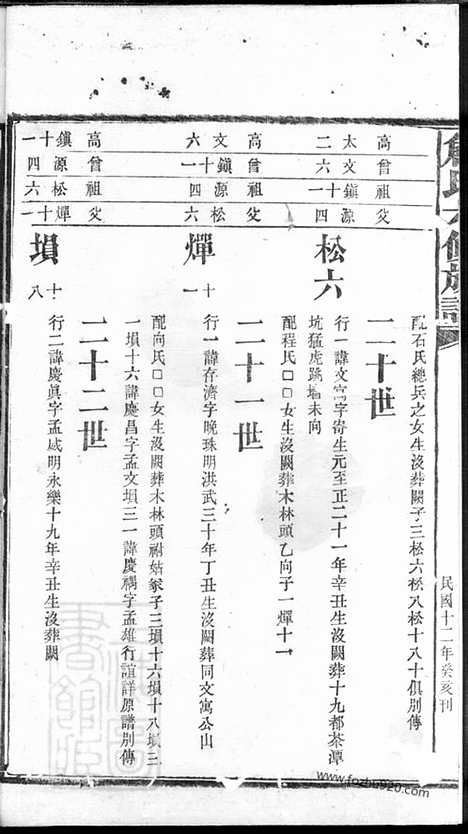 民國十二年癸亥刊
高太二
曾文六
祖鎮十一
父源四
配石氏總兵之女生沒闕葬闕子三松六松八松十八十俱別傳
二十世
松六
行一諱文寓字寄生元至正二十一年辛丑生沒闕葬十九都茶潭
坑猛虎跳墻未向
配程氏□□女生沒闕葬木林頭乙向子一燀十一
高文六
曾鎮十一
祖源四
父松六
二十一世
燀十一
行一諱存濟字晚珠明洪武三十年丁丑生沒闕葬同文寓公山
配向氏□□女生沒闕葬木林頭祔姑冢子三塤十六塤十八塤三
一塤十六諱慶昌字孟文塤三一諱慶禑字孟雄行誼詳原譜別傳
高鎮十一
曾源四
祖松六
父燀十一
二十二世
塤十八
行二諱慶眞字孟威明永樂十九年辛丑生沒葬闕
www.fozhu920.com